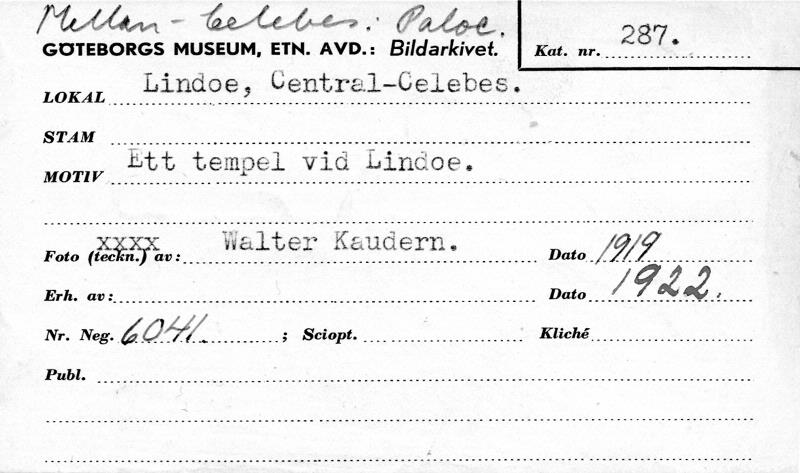 Mellan-Celebes: Paloe.
GÖTEBORGS MUSEUM, ETN. AVD.: Bildarkivet.
Kat. nr. 287.
LOKAL Lindoe, Central-Celebes.
STAM
MOTIV Ett tempel vid Lindoe.
Foto (teckn.) av: xxxx Walter Kaudern. Dato 1919
Erh. av: Dato 1922.
Nr. Neg. 6041. ; Sciopt. Kliché
Publ.